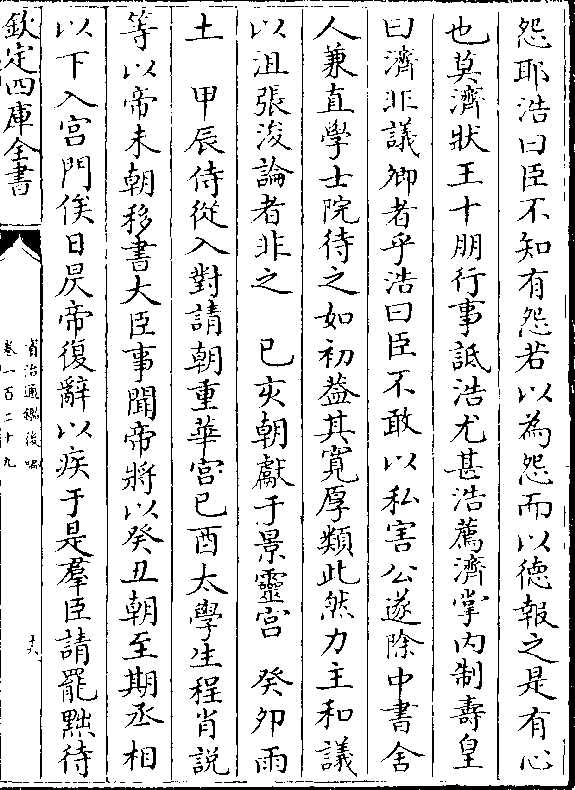 怨耶浩曰臣不知有怨若以為怨而以徳報之是有心
也莫濟狀王十朋行事詆浩尤甚浩薦濟掌内制壽皇
曰濟非議卿者乎浩曰臣不敢以私害公遂除中書舍
人兼直學士院待之如初葢其寛厚類此然力主和議
以沮張浚論者非之　己亥朝獻于景靈宫　癸卯雨
土　甲辰侍從入對請朝重華宫己酉太學生程肖説
等以帝未朝移書大臣事聞帝將以癸丑朝至期丞相
以下入宫門俟日昃帝復辭以疾于是羣臣請罷黜待
欽定四庫全書
資治通鑑後編
卷一百二十九
十六